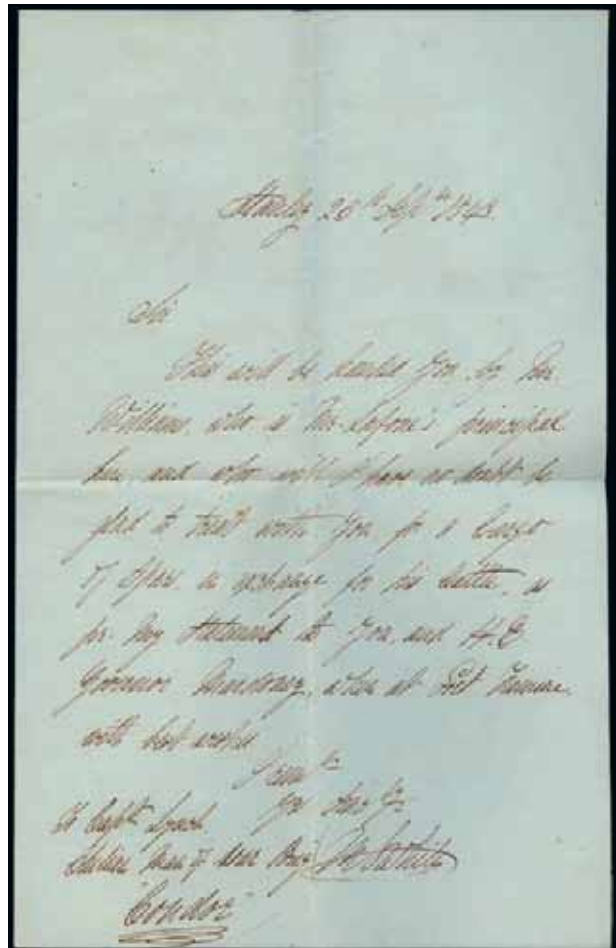 Stanley 26th Sepr 1848.
Sir
This will be handed you by Mr.
Williams, who is Mr. Lafone's principal
here, and who will I have no doubt be
glad to treat with you for a Cargo
of Spars, in exchange for his Cattle, as
pr. my statement to you, and H.E.
Governor, when at Port Famine.
with best wishes
I am Sir
yr
To Captn Lynch
Chilian Man of War Brig
"Condor"